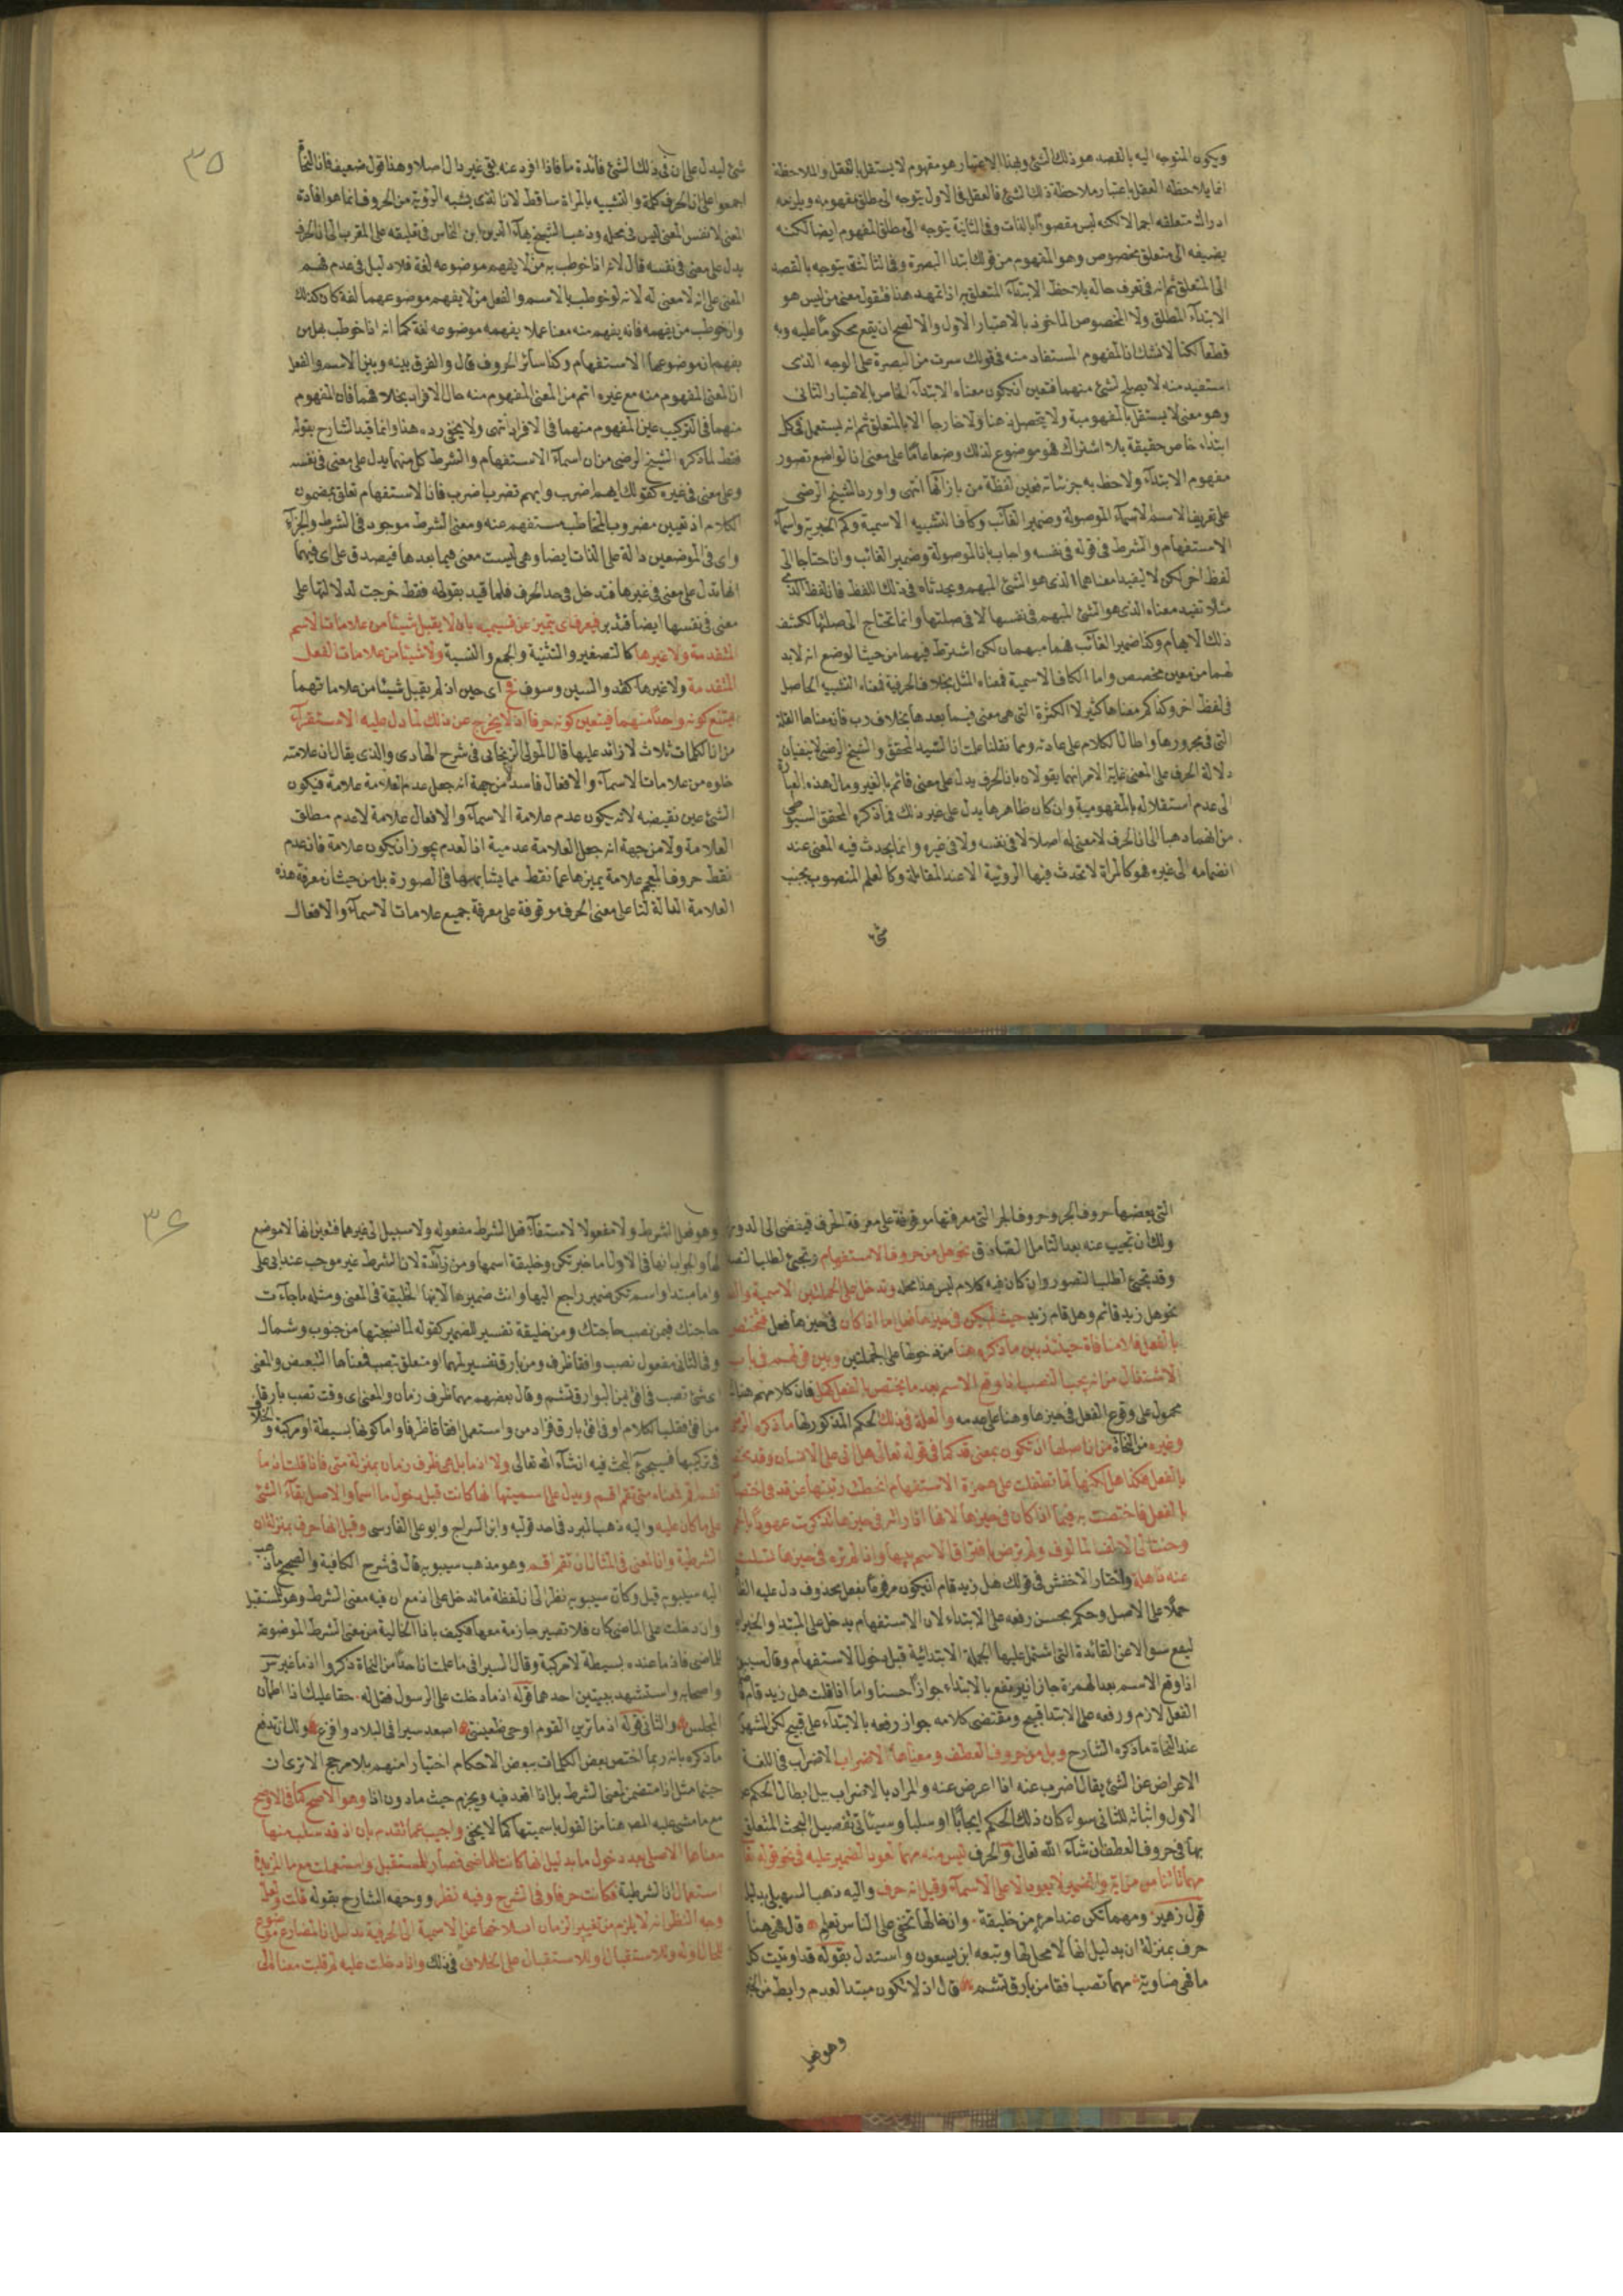 ويكون المتوجه اليه بالقصد هو ذلك الشئ وبهذا الاعتبار هو مفهوم لا يستقل بالتعقل والملاحظة
انما يلاحظه العقل باعتبار ملاحظة ذلك الشئ فالعقل في الاول يتوجه الى مطلق مفهومه ويلزمه
ادراك متعلقه اجمالا لكنه ليس مقصودًا بالذات وفي الثانية يتوجه الى مطلق المفهوم ايضا لكنه
يضيفه الى متعلق مخصوص وهو المفهوم من قولك ابتدا البصرة وفي الثالثة يتوجه بالقصد
الى المتعلق ثم انه في تعرف حاله يلاحظ الابتدآء المتعلق به اذا تمهد هذا فنقول معنى من ليس هو
الابتدآء المطلق ولا المخصوص الماخوذ بالاعتبار الاول والا لصح ان يقع محكومًا عليه وبه
قطعا لكنا لا نشك ان المفهوم المستفاد منه في قولك سرت من البصرة على الوجه الذى
استفيد منه لا يصلح لشئ منهما فتعين ان يكون معناه الابتدآء الخاص بالاعتبار الثانى
وهو معنى لا يستقل بالمفهومية ولا يتحصل ذهنا ولا خارجا الا بالمتعلق ثم انه يستعمل في كل
ابتداء خاص حقيقة بلا اشتراك فهو موضوع لذلك وضعا عامًا على معنى ان الواضع تصور
مفهوم الابتدآء ولاحظ به جزئياته فعين لفظة من بازآئها انتهى واورد الشيخ الرضى
على تعريف الاسم الاسمآء الموصولة وضمير الغآئب وكاف التشبيه الاسمية وكم الخبرية واسمآء
الاستفهام والشرط في قوله في نفسه واجاب بان الموصولة وضمير الغائب وان احتاجا الى
لفظ اخر لكن لا ليفيدا معناهما الذى هو الشئ المبهم ويحدثاه في ذلك اللفظ فان لفظ الذى
مثلا تفيد معناه الذى هو الشئ المبهم في نفسها لا في صلتها وانما تحتاج الى صلتها لكشف
ذلك الابهام وكذا ضمير الغآئب فهما مبهمان لكن اشترط فيهما من حيث الوضع انه لابد
لهما من معين مخصص واما الكاف الاسمية فمعناه المثل بخلاف الحرفية فمعناه التشبيه الحاصل
في لفظ اخر وكذا كم معناها كثير لا الكثرة التى هى معنى فيما بعدها بخلاف رب فان معناها القلة
التى في مجرورها واطال الكلام على عادته ومما نقلنا علمت ان السيد المحقق والشيخ الرضى لا ينفيان
دلالة الحرف على المعنى غاية الامر انهما يقولان بان الحرف يدل على معنى قائم بالغير ومآل هذه العبارة
الى عدم استقلاله بالمفهومية وان كان ظاهرها يدل على غير ذلك فما ذكره المحقق السيوطى
من انهما ذهبا الى ان الحرف لا معنى له اصلا لا في نفسه ولا في غيره وانما يحدث فيه المعنى عند
انضمامه الى غيره فهو كالمرآة لا تحدث فيها الرؤية الا عند المقابلة وكالعلم المنصوب بجنب
شئ
٣٥
شئ ليدل على ان في ذلك الشئ فآئدة ما فاذا افرد عنه بقى غير دال اصلا وهذا قول ضعيف فان النحاة
اجمعوا على ان الحرف كلمة والتشبيه بالمراة ساقط لان الذى يشبه الرؤية من الحروف انما هو افادة
المعنى لا نفس المعنى ليس في محله وذهب الشيخ بهآء الدين ابن النحاس في تعليقه على المقرب الى ان الحرف
يدل على معنى في نفسه قال لانه اذا خوطب به من لا يفهم موضوعه لغة فلا دليل في عدم فهم
المعنى على انه لا معنى له لانه لو خوطب بالاسم والفعل من لا يفهم موضوعهما لغة كان كذلك
وان خوطب من يفهمه فانه يفهم منه معنا عملا يفهمه موضوعه لغة كما انه اذا خوطب بهل من
يفهم ان موضوعها الاستفهام وكذا سآئر الحروف قال والفرق بينه وبين الاسم والفعل
ان المعنى المفهوم منه مع غيره اتم من المعنى المفهوم منه حال الافراد بخلافهما فان المفهوم
منهما في التركيب عين المفهوم منهما في الافراد انتهى ولا يخفى رده هذا وانما قيد الشارح بقوله
فقط لما ذكره الشيخ الرضى من ان اسمآء الاستفهام والشرط كل منها يدل على معنى في نفسه
وعلى معنى في غيره كقولك ايهم اضرب وايهم تضرب اضرب فان الاستفهام تعلق بمضمون
الكلام اذ تعيين مضروب المخاطب مستفهم عنه ومعنى الشرط موجود في الشرط والجزآء
واى في الموضعين دالة على الذات ايضا وهى ليست معنى فيما بعدها فيصدق على اى فيهما
انها تدل على معنى في غيرها فتدخل في حد الحرف فلما قيد بقوله فقط خرجت لدلالتها على
معنى في نفسها ايضا فتدبر فيعرف اى يتميز عن قسيميه بان لا يقبل شيئا من علامات الاسم
المتقدمة ولا غيرها كالتصغير والتثنية والجمع والنسبة ولا شيئا من علامات الفعل
المتقدمة ولا غيرها كقد والسين وسوف فح اى حين اذ لم يقبل شيئا من علاماتهما
يمتنع كونه واحدًا منهما فيتعين كونه حرفا اذ لا يخرج عن ذلك لما دل عليه الاستقرآء
من ان الكلمات ثلاث لا زائد عليها قال المولى الزنجانى في شرح الهادى والذى يقال ان علامته
خلوه من علامات الاسمآء والافعال فاسد لا من جهة انه جعل عدم العلامة علامة فيكون
الشئ عين نقيضه لانه يكون عدم علامة الاسمآء والافعال علامة لا عدم مطلق
العلامة ولا من جهة انه جعل العلامة عدمية اذ العدم يجوز ان يكون علامة فان عدم
نقط حروف المعجم علامة يميزها عما نقط مما يشابهها في الصورة بل من حيث ان معرفة هذه
العلامة الدالة لنا على معنى الحرف موقوفة على معرفة جميع علامات الاسمآء والافعال
التى بعضها حروف الجر وحروف الجر التى معرفتها موقوفة على معرفة الحرف فيفضى الى الدور
ولك ان تجيب عنه بعد التامل الصادق نحو هل من حروف الاستفهام وتجئ لطلب
وقد تجئ لطلب التصور وان كان فيه كلام ليس هذا محله وتدخل على الجملتين الاسمية
نحو هل زيد قائم وهل قام زيد حيث لم يكن في حيزها فعل اما اذا كان في حيزها فعل فتختص
بالفعل فلا منافاة حينئذ بين ما ذكروه هنا من دخولها على الجملتين وبين قولهم في باب
الاشتغال من انه يجب النصب اذا وقع الاسم بعد ما يختص بالفعل كهل فان كلامهم هناك
محمول على وقوع الفعل في حيزها وهنا على عدمه والعلة في ذلك الحكم المذكور لها ما ذكره الرضى
وغيره من النحاة من ان اصلها ان تكون بمعنى قد كما في قوله تعالى هل اتى على الانسان وقد يختص
بالفعل فكذا هل لكنها لما تطفلت على همزة الاستفهام انحطت رتبتها عن قد في اختصاصها
بالفعل فاختصت به فيما اذا كان في حيزها لانها اذا راته في حيزها تذكرت عهودًا بالحمى
وحنت الى الالف المالوف ولم ترض بافتراق الاسم بينهما واذا لم تره في حيزها تسلت
عنه ذاهلة واختار الاخفش في قولك هل زيد قام ان يكون مرفوعًا بفعل محذوف دل عليه
حملا على الاصل وحكم بحسن رفعه على الابتداء لان الاستفهام يدخل على المبتدا والخبر
ليقع سوالا عن الفائدة التى اشتمل عليها الجملة الابتدائية قبل دخول الاستفهام وقال سيبويه
اذا وقع الاسم بعد الهمزة جاز ان يرتفع بالابتداء جوازًا حسنا واما اذا قلت هل زيد قام
الفعل لازم ورفعه على الابتدا قبيح ومقتضى كلامه جواز رفعه بالابتداء على قبح لكن المشهور
عند النحاة ما ذكره الشارح وبل من حروف العطف ومعناها الاضراب الاضراب في اللغة
الاعراض عن الشئ يقال اضرب عنه اذا اعرض عنه والمراد بالاضراب ببل ابطال الحكم
الاول واثباته للثانى سواء كان ذلك الحكم ايجابًا او سلبا وسيئاتى تفصيل البحث المتعلق
بها في حروف العطف ان شآء الله تعالى والحرف ليس منه مهما لعود الضمير عليه في نحو قوله تعالى
مهما تاتنا به من اية والضمير لا يعود الا على الاسمآء وقيل انه حرف واليه ذهب السهيلى بدليل
قول زهير ومهما تكن عند امرئ من خليقة وان خالها تخفى على الناس تعلم قال فهى هنا
حرف بمنزلة ان بدليل انها لا محل لها وتبعه ابن يسعون واستدل بقوله قد اوبيت كل
ما فهى ضاوية مهما تصب افقا من بارق تشم قال اذ لا تكون مبتدا لعدم رابط من الخبر
وهو فعل
٣٦
وهو فعل الشرط ولا مفعولا لاستيفآء فعل الشرط مفعوله ولا سبيل الى غيرهما فتعين انها لا موضع
لها والجواب انها في الاول اما خبر تكن وخليقة اسمها ومن زآئدة لان الشرط غير موجب عند ابى على
واما مبتدا واسم تكن ضمير راجع اليها وانث ضميرها لانها الخليقة في المعنى ومثله ما جآءت
حاجتك فيمن نصب حاجتك ومن خليقة تفسير للضمير كقوله لما نسجتها من جنوب وشمال
وفي الثانى مفعول تصب وافقا ظرف ومن بارق تفسير لمهما او متعلق بتصب فمعناها التبعيض والمعنى
اى شئ تصب في افق من البوارق تشم وقال بعضهم مهما ظرف زمان والمعنى اى وقت تصب بارقا
من افق فقلب الكلام او في افق بارقا فزاد من واستعمل افقا ظرفا واما كونها بسيطة او مركبة والخلاف
في تركيبها فسيجئ البحث فيه انشآء الله تعالى ولا اذ ما بل هى ظرف زمان بمنزلة متى فاذا قلت اذ ما
تقم اقم فمعناه متى تقم اقم ويدل على اسميتها انها كانت قبل دخول ما اسما والاصل بقآء الشئ
على ما كان عليه واليه ذهب المبرد في احد قوليه وابن السراج وابو على الفارسى وقيل انها حرف بمنزلة ان
الشرطية وان المعنى في المثال ان تقم اقم وهو مذهب سيبويه قال في شرح الكافية والصحيح ما ذهب
اليه سيبويه قيل وكان سيبويه نظر الى ان لفظة ما ئد خل على اذ مع ان فيه معنى الشرط وهو للمستقبل
وان دخلت على الماضى كان فلا تصير جازمة معها فكيف باذ الخالية من معنى الشرط الموضوعة
للماضى فاذ ما عنده بسيطة لا مركبة وقال السيرافى ما علمت ان احدًا من النحاة ذكروا اذ ما غير س
واصحابه واستشهد ببيتين احدهما قوله اذ ما دخلت على الرسول فقل له حقا عليك اذا اطمأن
المجلس والثانى قوله اذ ما ترين القوم اوجى ظعينتى اصعد سيرا في البلاد وافرع ولك ان تدفع
ما ذكره بانه ربما اختص بعض الكلمات ببعض الاحكام اختيارا منهم بلا مرجح الا ترى ان
حيثما مثل اذا متضمن لمعنى الشرط بل اذا اقعد فيه ويجزم حيث ما دون اذا وهو الاصح كما في الاوضح
مع ما مشى عليه المصـ هنا من القول باسميتها كما لا يخفى واجيب عما تقدم بان اذ قد سلب منها
معناها الاصلى بعد دخول ما بدليل انها كانت للماضى فصار للمستقبل واستعملت مع ما المزيدة
استعمال ان الشرطية فكانت حرفا وفي الشرح وفيه نظر ووجهه الشارح بقوله قلت ولعل
وجه النظر انه لا يلزم من تغيير الزمان انسلاخها عن الاسمية الى الحرفية بدليل ان المضارع موضوع
للحال اوله وللاستقبال او للاستقبال على الخلاف في ذلك واذا دخلت عليه لم قلبت معناه الى